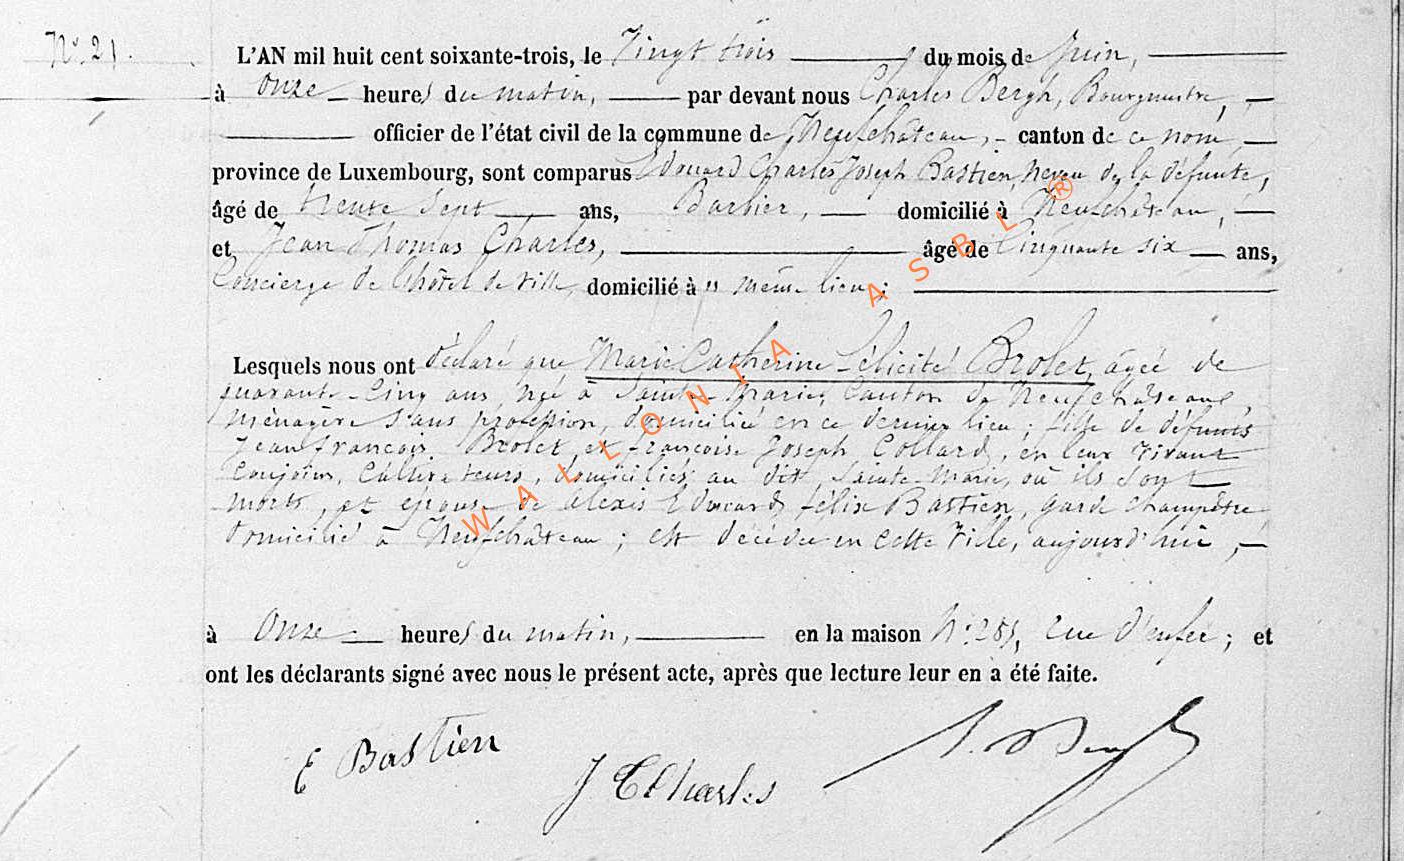 N° 21.
L'AN mil huit cent soixante-trois, le Vingt trois du mois de Juin,
à onze heures du matin, par devant nous Charles Bergh, Bourgmestre,
officier de l'état civil de la commune de Neufchâteau, canton de ce nom,
province de Luxembourg, sont comparus Edouard Charles Joseph Bastien, neveu de la défunte,
âgé de trente sept ans, Barbier, domicilié à Neufchâteau,
et Jean Thomas Charles, âgé de Cinquante six ans,
Concierge de l'hôtel de ville, domicilié à " même lieu ;
Lesquels nous ont déclaré que Marie Catherine Félicité Brolet, âgée de
quarante-cinq ans, née à Sainte-Marie, Canton de Neufchâteau,
ménagère sans profession, domiciliée en ce dernier lieu ; fille de défunts
Jean François Brolet, et Françoise Joseph Collard, en leur vivant
conjoins, Cultivateurs, domiciliés au dit, Sainte-Marie, où ils sont
morts, et épouse de Alexis Edouard Félix Bastien, garde champêtre,
domicilié à Neufchâteau ; est décédée en cette ville, aujourd'hui,
à Onze heures du matin, en la maison N° 285, rue d'enfer ; et
ont les déclarants signé avec nous le présent acte, après que lecture leur en a été faite.
E Bastien
J T Charles
WALLONIA ASBL ®